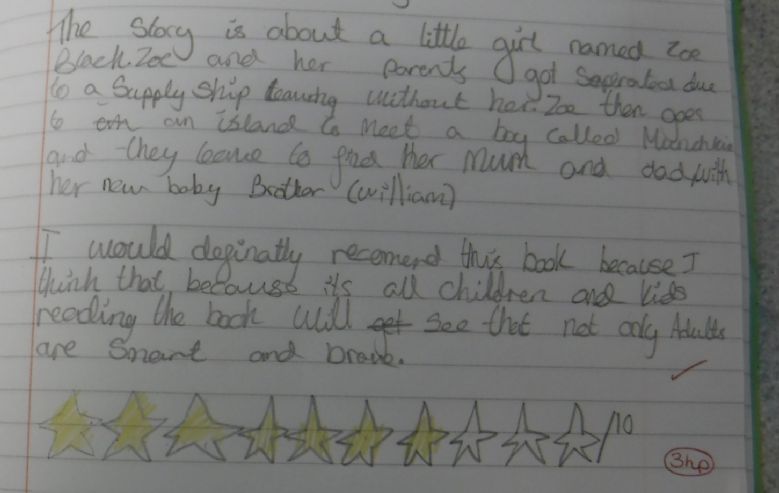 The Story is about a little girl named Zoe
Black. Zoe and her parents got Seperated due
to a Supply Ship leaving without her. Zoe then goes
to an island to meet a boy called
and they leave to find her Mum and dad, with
her new baby Brother (william)
I would definatly recomend this book because I
think that, because its all children and kids
reading the book will get see that not only Adults
are Smart and brave.
/10
3hp